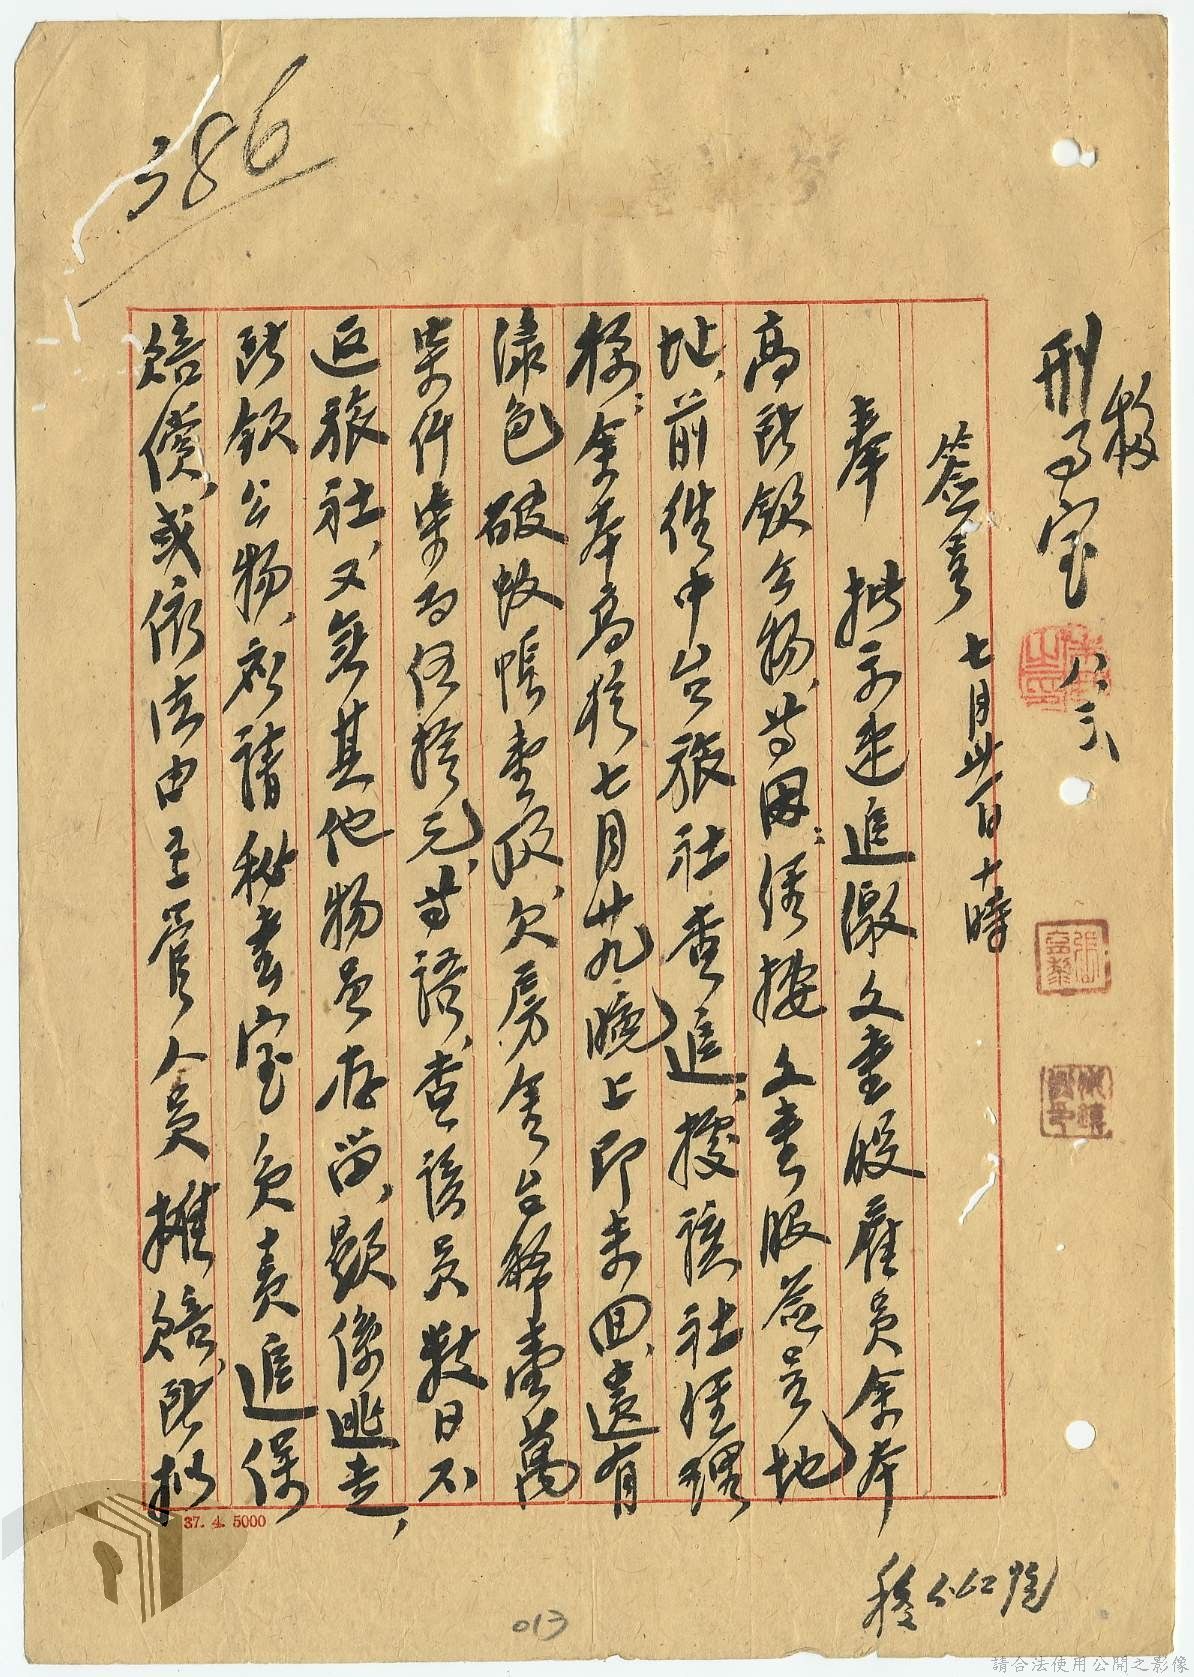 移
刑事室
八.三
簽呈 七月卅一日十時
奉 批示速追繳文書股雇員余本
高所領公物,等因;係按文書股簽呈地
址,前往中台旅社查追,據該社經理
稱:余本高於七月廿九晚上即未回,遺有
綠色破蚊帳壹頂,欠房金台幣壹萬
柒仟柒百伍拾元,等語,查該員數日不
返旅社,又無其他物品存留,顯係逃走,
所領公物,祈請秘書室負責追保
賠償,或依法由主管人員攤賠,所擬
386
37. 4. 5000
013
請合法使用公開之影像